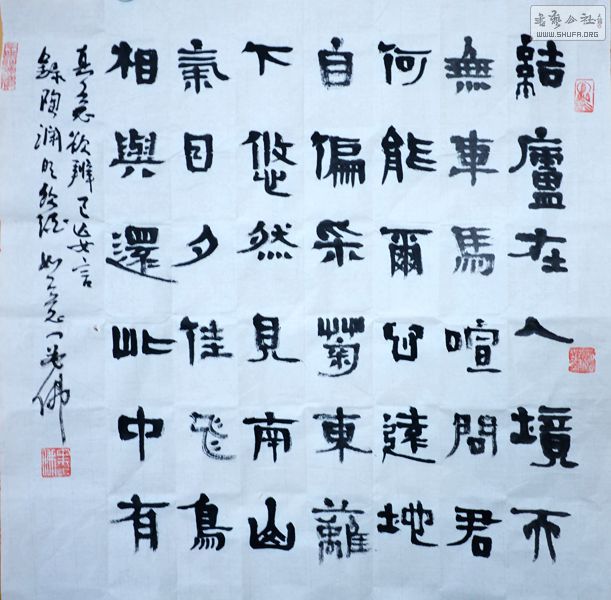 結廬在人境而
無車馬喧問君
何能爾心遠地
自偏采菊東蘺
下悠然見南山
氣目夕佳飛鳥
相與還此中有
真意欲辨已忘言
錄陶淵明
书艺公社
WWW.SHUFA.ORG